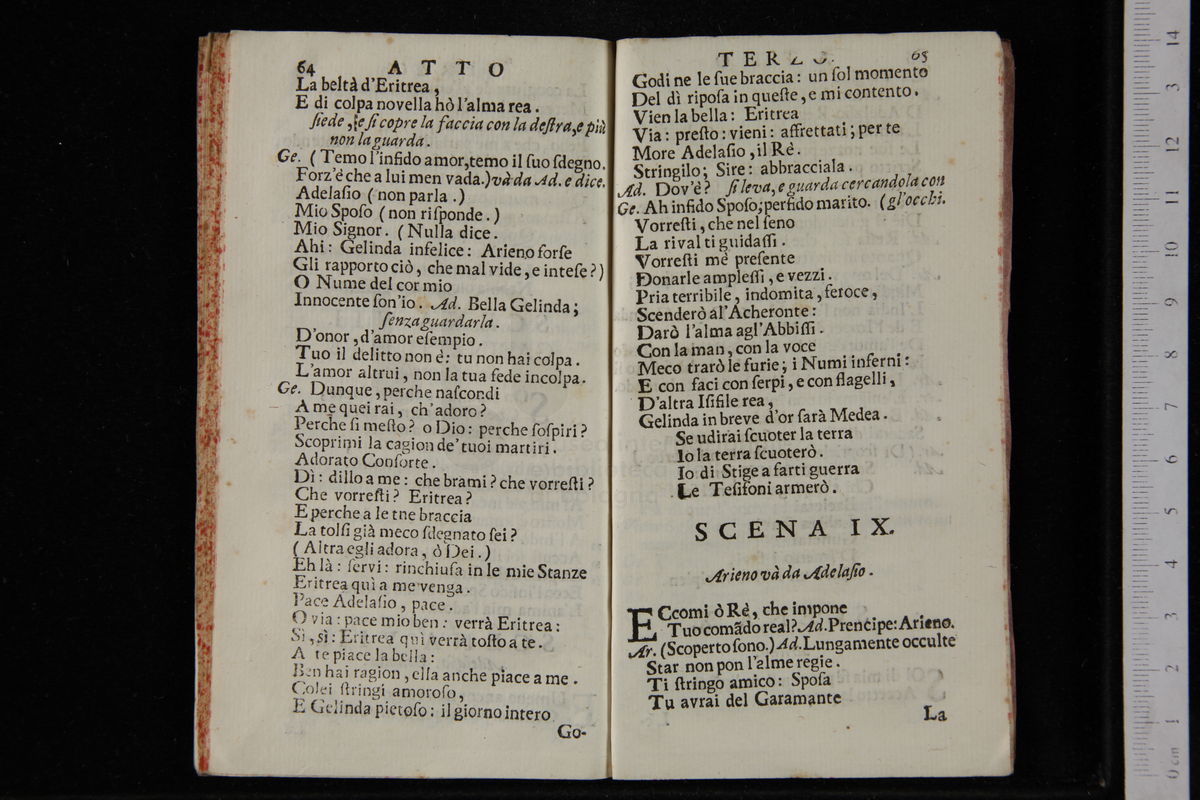 64 ATTO
La beltà d'Eritrea,
E di colpa novella hò l'alma rea.
ſiede, e ſi copre la faccia con la deſtra, e più
non la guarda.
Ge. (Temo l'infido amor, temo il ſuo ſdegno.
Forz'è che a lui men vada.) và da Ad. e dice.
Adelaſio (non parla.)
Mio Spoſo (non riſponde.)
Mio Signor. (Nulla dice.
Ahi: Gelinda infelice: Arieno forſe
Gli rapporto ciò, che mal vide, e inteſe?)
O Nume del cor mio
Innocente ſon'io. Ad. Bella Gelinda;
ſenza guardarla.
D'onor, d'amor eſempio.
Tuo il delitto non è: tu non hai colpa.
L'amor altrui, non la tua fede incolpa.
Ge. Dunque, perche naſcondi
A me quei rai, ch'adoro?
Perche ſi meſto? o Dio: perche ſoſpiri?
Scoprimi la cagion de' tuoi martiri.
Adorato Conſorte.
Dì: dillo a me: che brami? che vorreſti?
Che vorreſti? Eritrea?
E perche a le tne braccia
La tolſi già meco ſdegnato ſei?
(Altra egli adora, ò Dei.)
Eh là: ſervi: rinchiuſa in le mie Stanze
Eritrea quì a me venga.
Pace Adelaſio, pace.
O via: pace mio ben: verrà Eritrea:
Sì, sì: Eritrea quì verrà toſto a te.
A te piace la bella:
Ben hai ragion, ella anche piace a me.
Colei ſtringi amoroſo,
E Gelinda pietoſo: il giorno intero
Go-
TERZO. 65
Godi ne le ſue braccia: un ſol momento
Del dì ripoſa in queſte, e mi contento.
Vien la bella: Eritrea
Via: preſto: vieni: affrettati; per te
More Adelaſio, il Rè.
Stringilo; Sire: abbracciala.
Ad. Dov'è? ſi leva, e guarda cercandola con
Ge. Ah infido Spoſo; perfido marito. (gl'occhi.
Vorreſti, che nel ſeno
La rival ti guidaſſi.
Vorreſti me preſente
Donarle ampleſſi, e vezzi.
Pria terribile, indomita, feroce,
Scenderò al'Acheronte:
Darò l'alma agl'Abbiſſi.
Con la man, con la voce
Meco trarò le furie; i Numi inferni:
E con faci con ſerpi, e con flagelli,
D'altra Iſifile rea,
Gelinda in breve d'or ſarà Medea.
Se udirai ſcuoter la terra
Io la terra ſcuoterò.
Io di Stige a farti guerra
Le Teſifoni armerò.
SCENA IX.
Arieno và da Adelaſio.
ECcomi ò Rè, che impone
Tuo comãdo real? Ad. Prencipe: Arieno.
Ar. (Scoperto ſono.) Ad. Lungamente occulte
Star non pon l'alme regie.
Ti ſtringo amico: Spoſa
Tu avrai del Garamante
La
14
3
12
11
10
9
8
7
6
5
4
3
2
1
0 cm